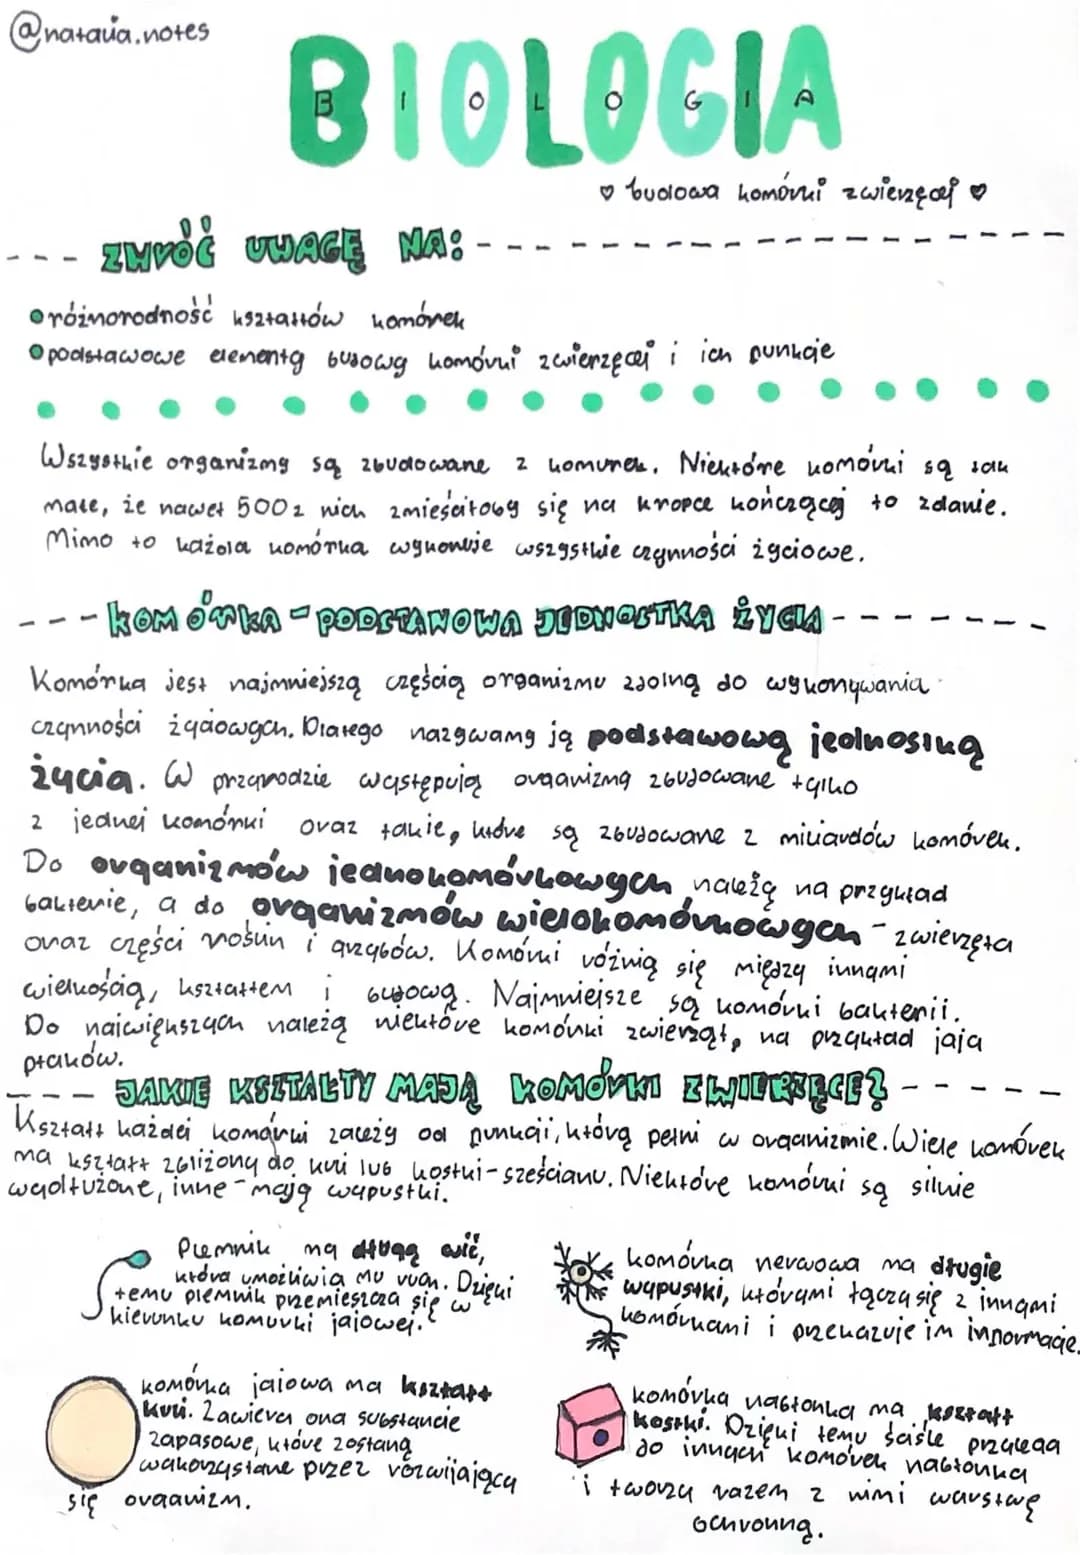 @natalia.notes
BIOLOGIA
B I O L O G I A
♡ budowa komórki zwierzęcej ♡
ZWRÓĆ UWAGĘ NA:
• różnorodność kształtów komórek
• podstawowe elementy budowy komórki zwierzęcej i ich funkcje
Wszystkie organizmy są zbudowane z komurek. Niektóre komórki są tak
małe, że nawet 500 z nich zmieściłoby się na kropce kończącej to zdanie.
Mimo to każda komórka wykonuje wszystkie czynności życiowe.
KOMÓRKA - PODSTAWOWA JEDNOSTKA ŻYCIA
Komórka jest najmniejszą częścią organizmu zdolną do wykonywania
czynności życiowych. Dlatego nazywamy ją podstawową jednostką
życia. W przyrodzie występują organizmy zbudowane tylko
z jednej komórki oraz takie, które są zbudowane z miliardów komórek.
Do organizmów jednokomórkowych należą na przykład
bakterie, a do organizmów wielokomórkowych - zwierzęta
oraz części roślin i grzybów. Komórki różnią się między innymi
wielkością, kształtem i budową. Najmniejsze są komórki bakterii.
Do największych należą niektóre komórki zwierząt, na przykład jaja
ptaków.
JAKIE KSZTAŁTY MAJĄ KOMÓRKI ZWIERZĘCE?
Kształt każdej komórki zależy od funkcji, którą pełni w organizmie. Wiele komórek
ma kształt zbliżony do kuli lub kostki-sześcianu. Niektóre komórki są silnie
wydłużone, inne - mają wypustki.
Plemnik ma długą wić,
która umożliwia mu ruch. Dzięki
temu plemnik przemieszcza się w
kierunku komurki jajowej.
komórka nerwowa ma długie
wypustki, którymi łączy się z innymi
komórkami i przekazuje im informacje.
komórka jajowa ma kształt
kuli. Zawiera ona substancje
zapasowe, które zostaną
wykorzystane przez rozwijający
się organizm.
komórka nabłonka ma kształt
kostki. Dzięki temu ściśle przylega
do innych komórek nabłonka
i tworzy razem z nimi warstwę
ochronną.